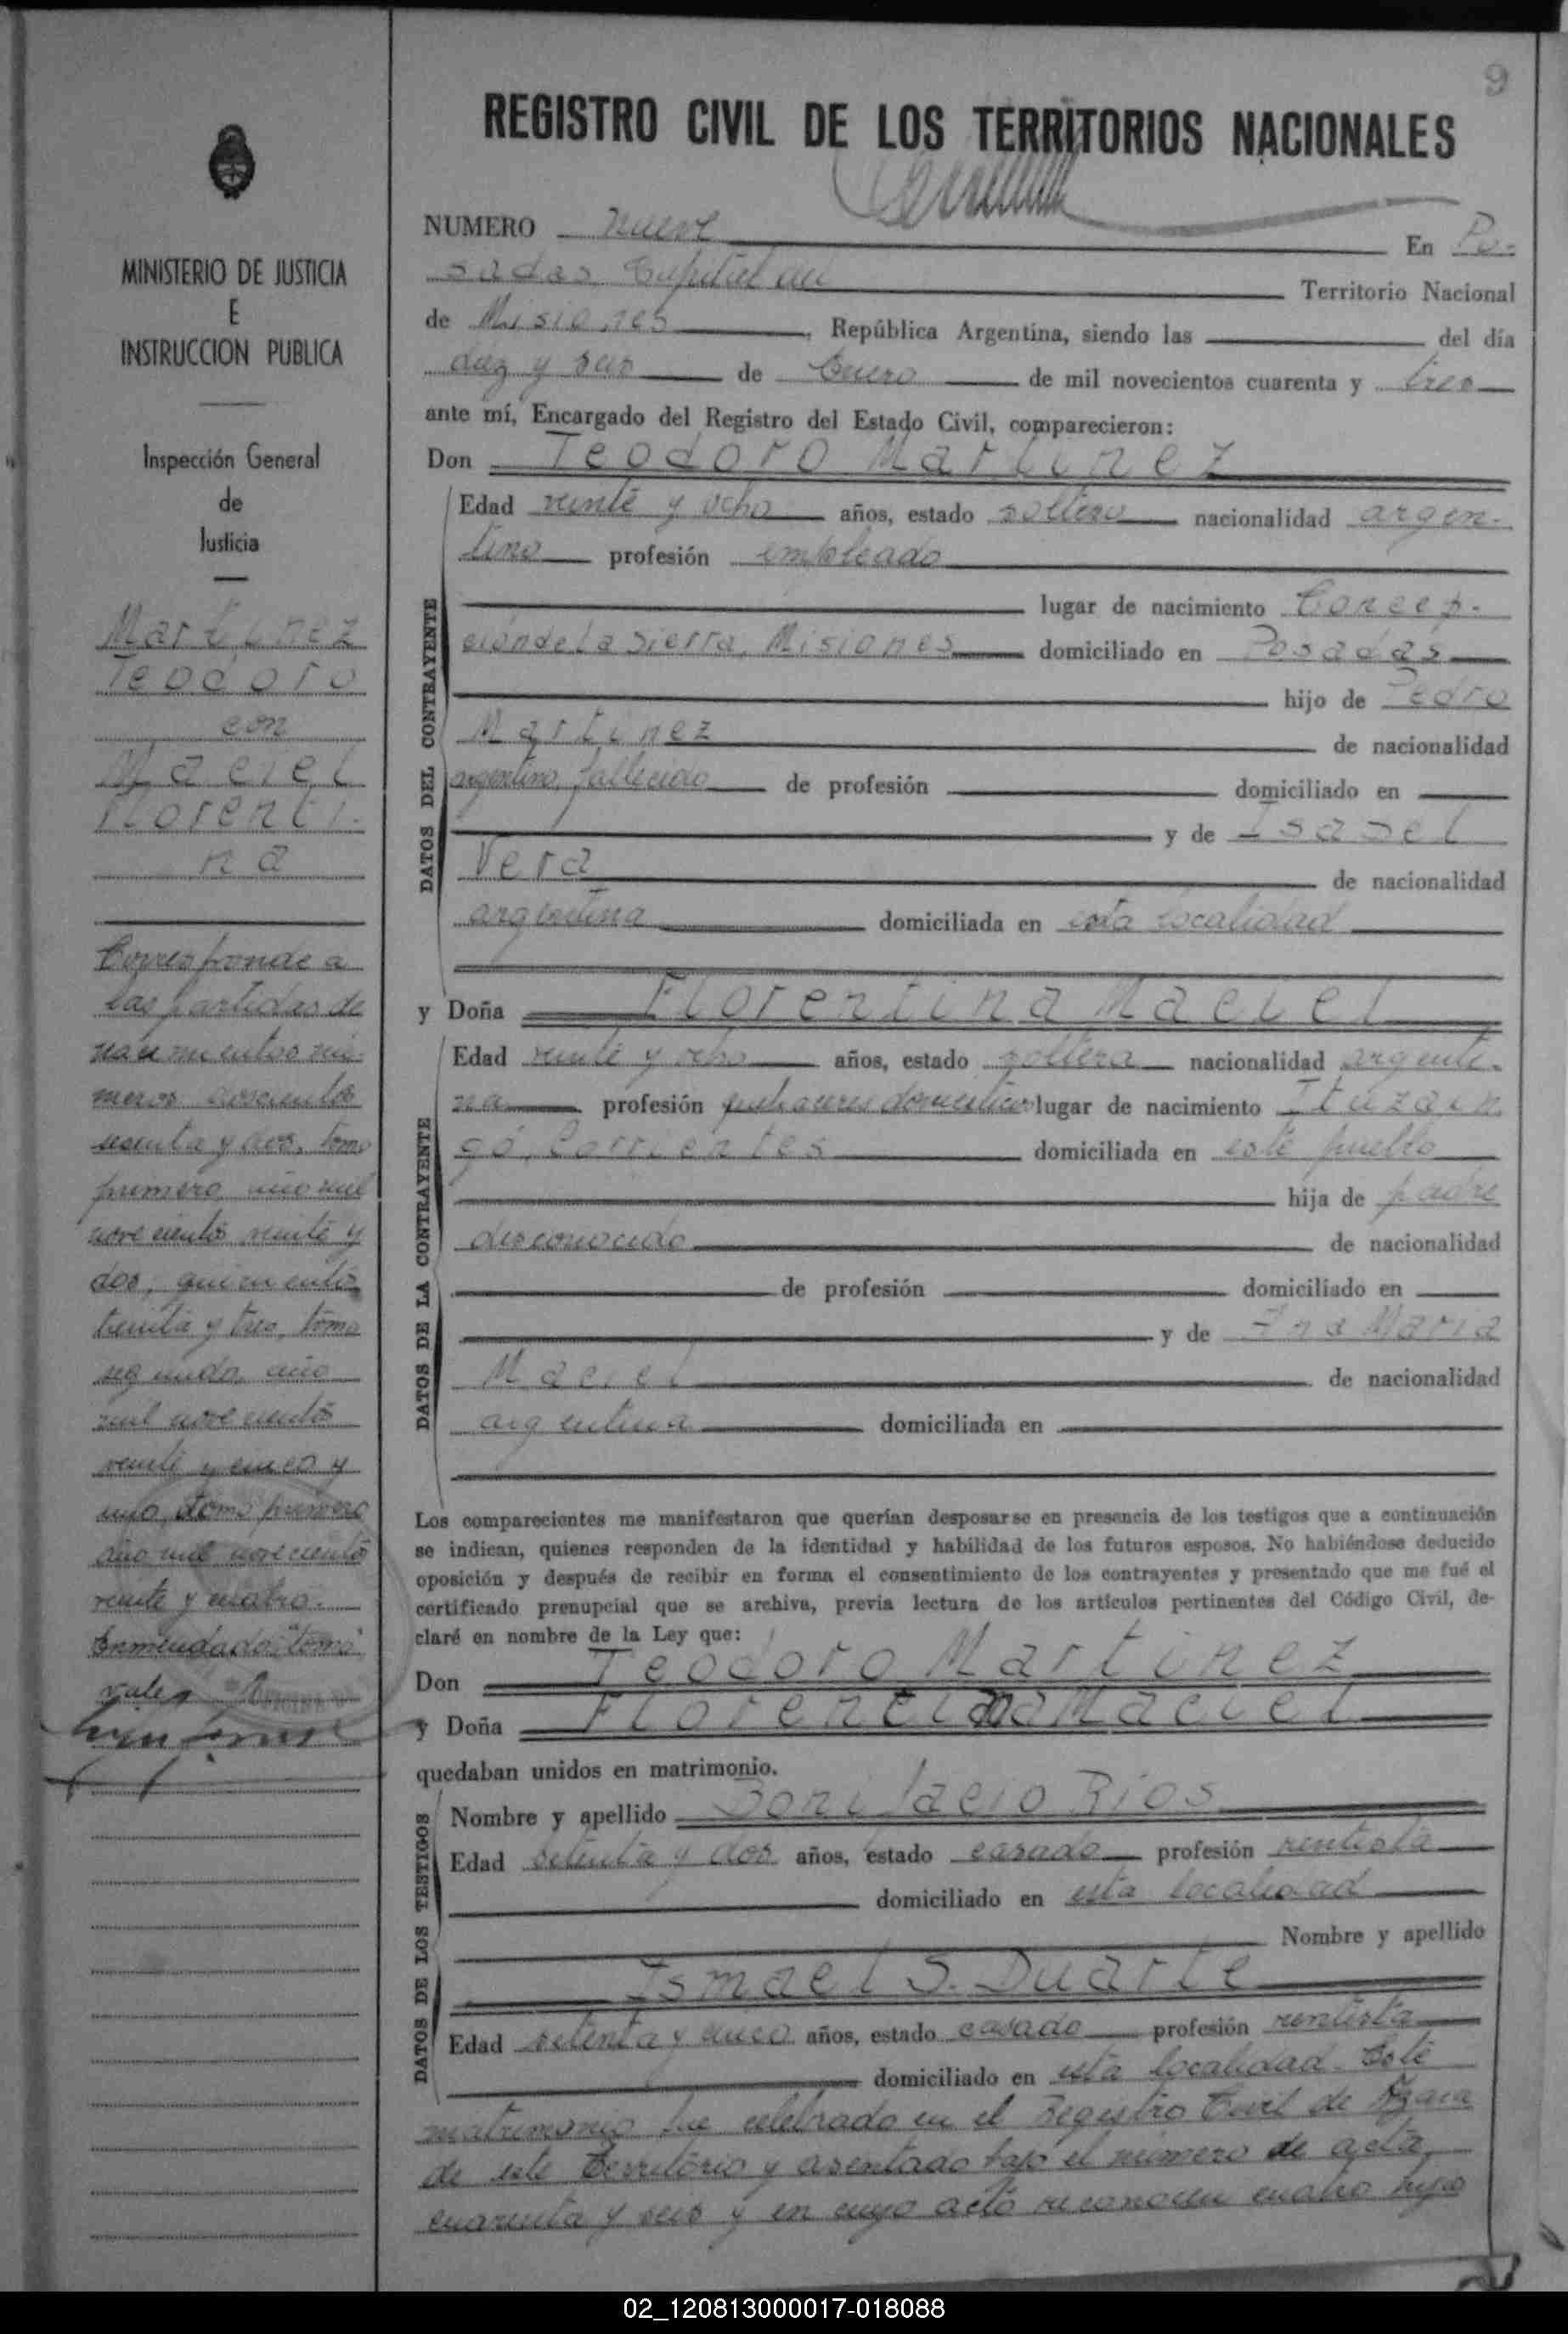 9
REGISTRO CIVIL DE LOS TERRITORIOS NACIONALES
NUMERO nueve En Po-
sadas Capital del Territorio Nacional
de Misiones, República Argentina, siendo las del día
diez y seis de Enero de mil novecientos cuarenta y tres
ante mí, Encargado del Registro del Estado Civil, comparecieron:
Don Teodoro Martinez
DATOS DEL CONTRAYENTE
Edad veinte y ocho años, estado soltero nacionalidad argen-
tino profesión empleado
lugar de nacimiento Concep-
ción de la Sierra, Misiones domiciliado en Posadas
hijo de Pedro
Martinez de nacionalidad
argentino, fallecido de profesión domiciliado en
y de Isabel
Vera de nacionalidad
argentina domiciliada en esta localidad
y Doña Florentina Maciel
DATOS DE LA CONTRAYENTE
Edad veinte y ocho años, estado soltera nacionalidad argenti-
na profesión quehaceres domesticos lugar de nacimiento Ituzain
gó, Corrientes domiciliada en este pueblo
hija de padre
desconocido de nacionalidad
de profesión domiciliado en
y de Ana Maria
Maciel de nacionalidad
argentina domiciliada en
Los comparecientes me manifestaron que querían desposarse en presencia de los testigos que a continuación
se indican, quienes responden de la identidad y habilidad de los futuros esposos. No habiéndose deducido
oposición y después de recibir en forma el consentimiento de los contrayentes y presentado que me fué el
certificado prenupcial que se archiva, previa lectura de los artículos pertinentes del Código Civil, de-
claré en nombre de la Ley que:
Don Teodoro Martinez
y Doña Florentina Maciel
quedaban unidos en matrimonio.
DATOS DE LOS TESTIGOS
Nombre y apellido Bonifacio Rios
Edad setenta y dos años, estado casado profesión rentista
domiciliado en esta localidad
Nombre y apellido
Ismael S. Duarte
Edad setenta y cinco años, estado casado profesión rentista
domiciliado en esta localidad. Este
matrimonio fue celebrado en el Registro Civil de Azara
de este Territorio y asentado bajo el número de acta
cuarenta y seis y en cuyo acto reconocen cuatro hijos
MINISTERIO DE JUSTICIA
E
INSTRUCCION PUBLICA
Inspección General
de
Justicia
Martinez
Teodoro
con
Maciel
Florenti-
na
Corresponde a
las partidas de
nacimientos nú-
meros doscientos
sesenta y dos, tomo
primero, año mil
novecientos veinte y
dos; quinientos
treinta y tres, tomo
segundo, año
mil novecientos
veinte y cinco y
uno, tomo primero
año mil novecientos
veinte y cuatro.
Enmendado: "tomo"
vale
02_120813000017-018088